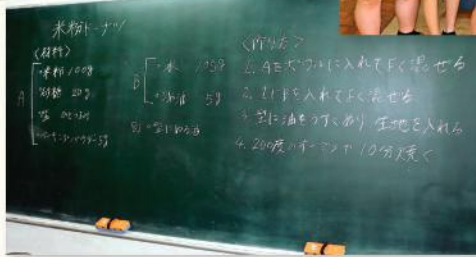 米粉ドーナツ
〈材料〉
A
・米粉 100g
・砂糖 20g
・塩 ひとつまみ
・ベーキングパウダー 5g
B
・水 105g
・油 5g
〈作り方〉
1. Aをボウルに入れてよく混ぜる
2. 1にBを入れてよく混ぜる
3. 型に油をうすくぬり 生地を入れる
4. 200度のオーブンで 10分焼く